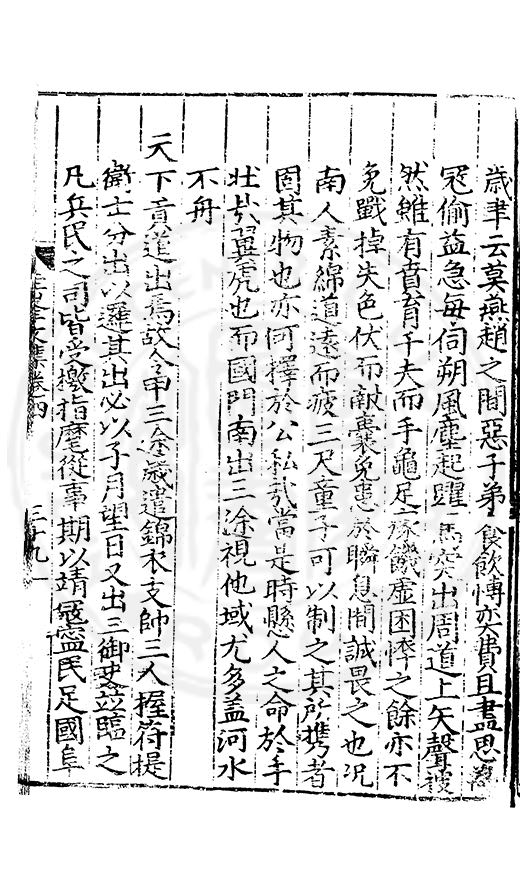 歲聿云莫燕趙之間惡子弟食飲博亦費且盡思為
冦偷益急每伺朔風塵起躍馬突出周道上矢聲
然雖有賁育千夫而手龜足瘃饑虛困悴之餘亦不
免戰掉失色伏而敵橐免患於瞬息間誠畏之也况
南人素綿道遠而疲三尺童子可以制之其所携者
固其物也亦何擇於公私㢤當是時懸人之命於手
壯㢤翼虎也而國門南出三途視他域尤多盖河水
不舟
天下貢道出焉故令甲三途歲遣錦衣支帥三人握符提
衛士分出以邏其出必以子月望日又出三御史並臨之
凡兵民之司皆受檄指麾從事期以靖冦寍民足國阜
文集卷四
三十九